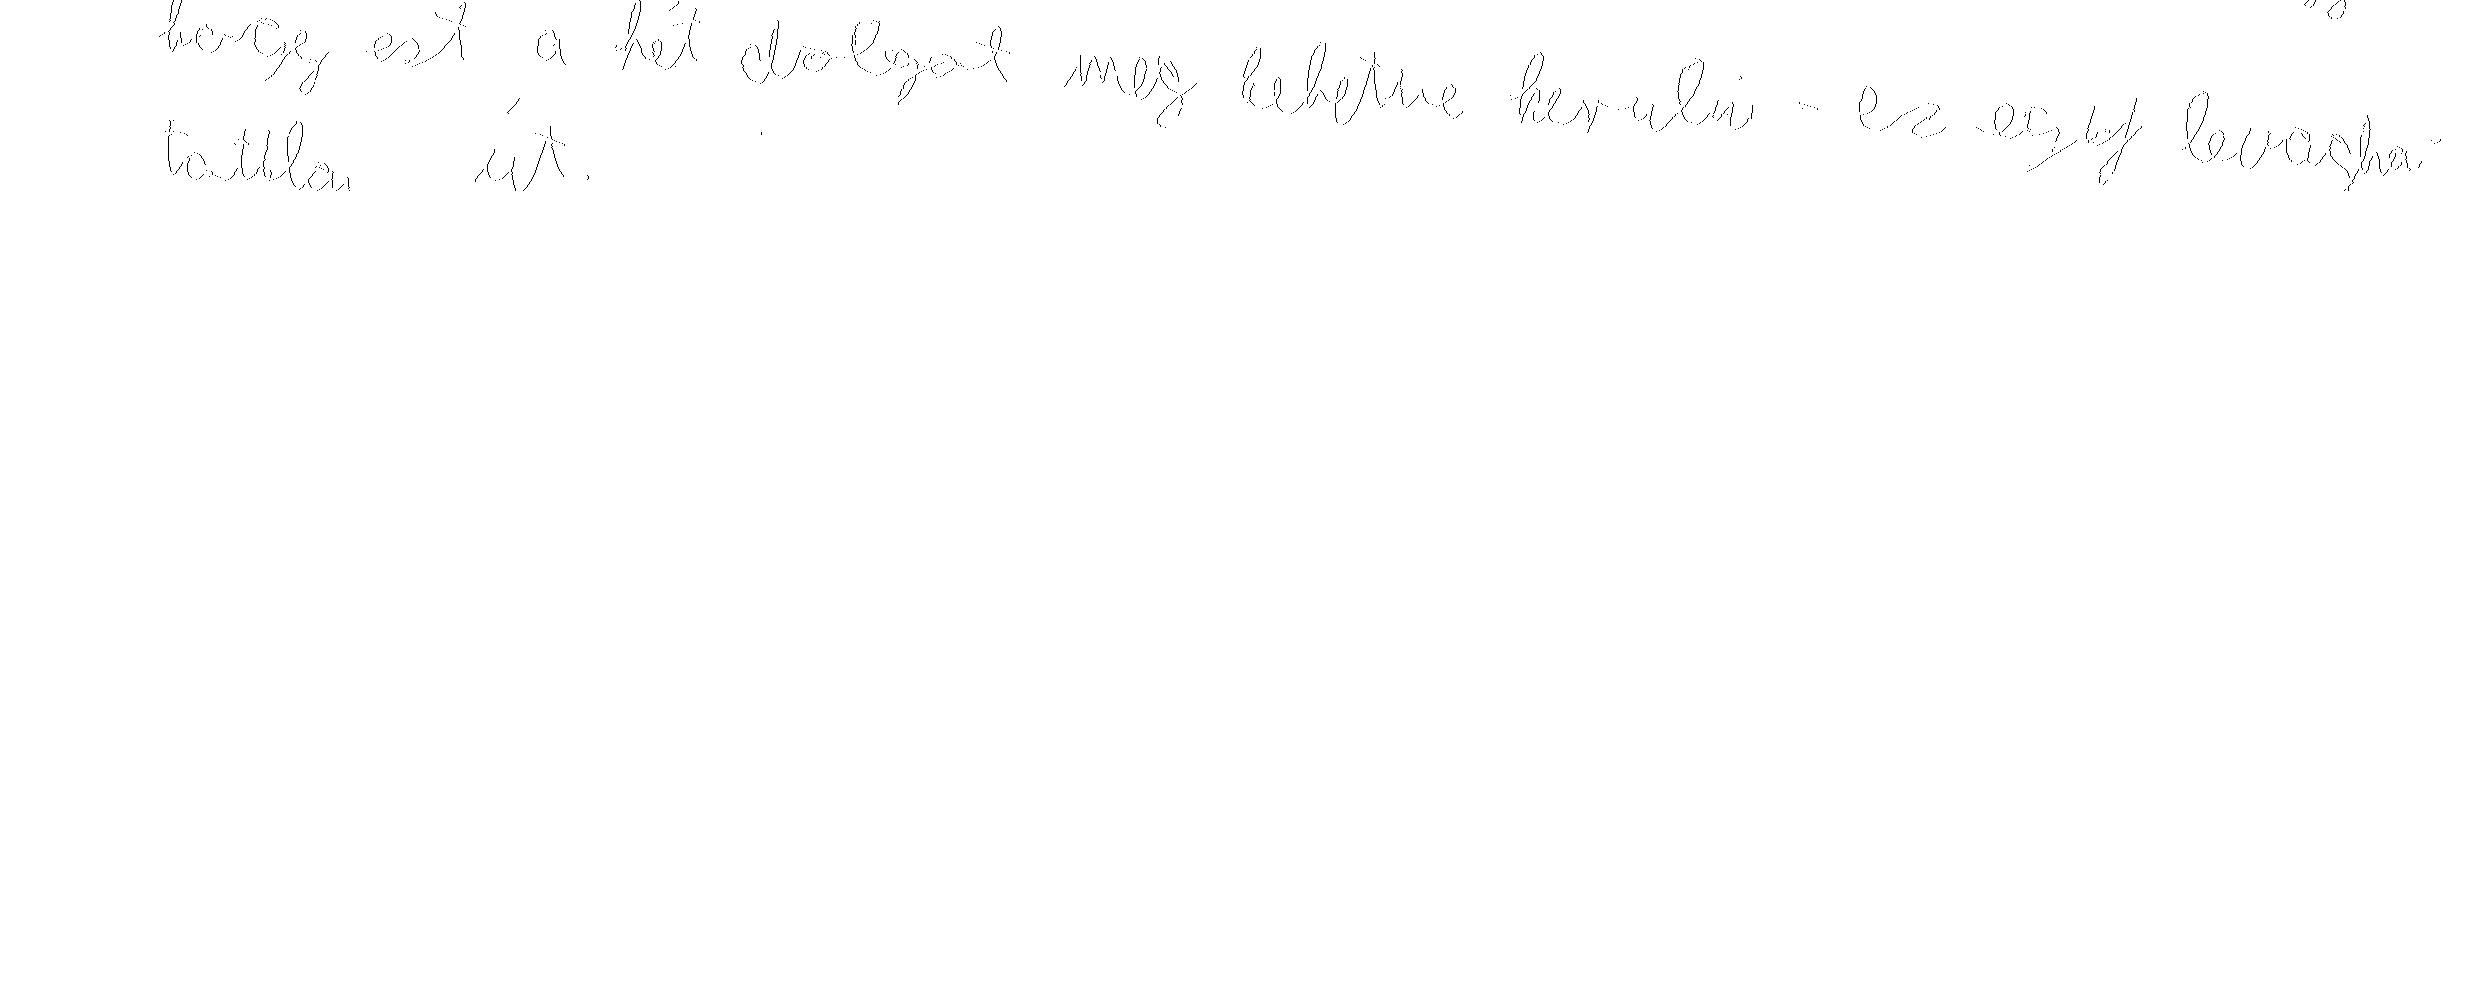 hogy ezt a hét dolgot meg lehetne kerulni - ez egy levágha-
tatlan út.